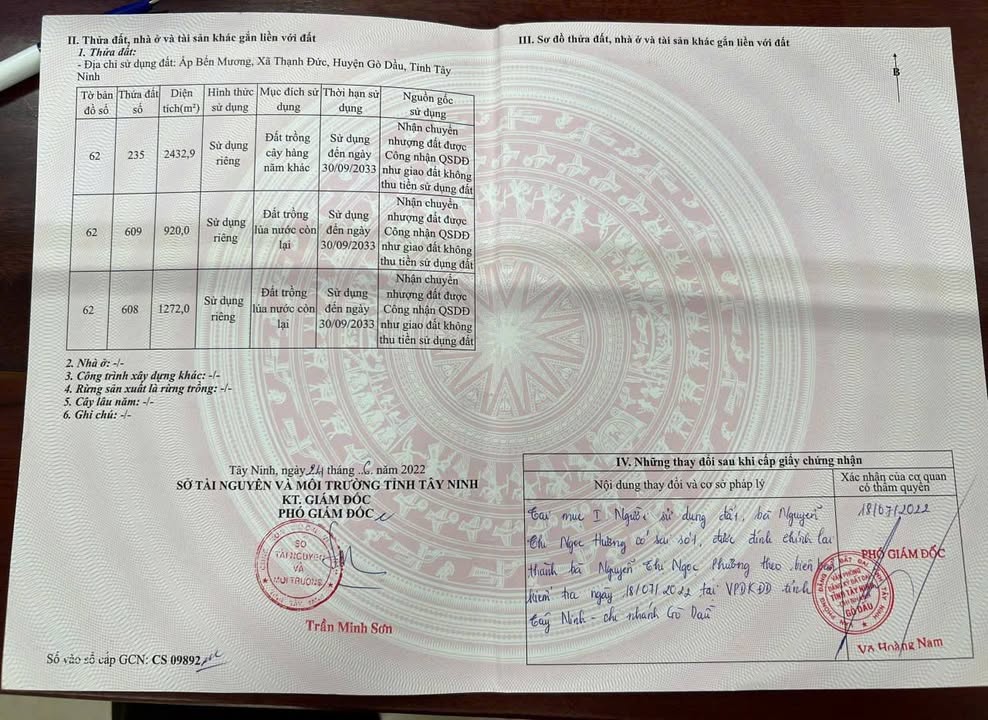 II. Thửa đất, nhà ở và tài sản khác gắn liền với đất
1. Thửa đất:
- Địa chỉ sử dụng đất: Ấp Bến Mương, Xã Thạnh Đức, Huyện Gò Dầu, Tỉnh Tây
Ninh
Tờ bản đồ số | Thửa đất số | Diện tích(m²) | Hình thức sử dụng | Mục đích sử dụng | Thời hạn sử dụng | Nguồn gốc sử dụng
62 | 235 | 2432,9 | Sử dụng riêng | Đất trồng cây hàng năm khác | Sử dụng đến ngày 30/09/2033 | Nhận chuyển nhượng đất được Công nhận QSDĐ như giao đất không thu tiền sử dụng đất
62 | 609 | 920,0 | Sử dụng riêng | Đất trồng lúa nước còn lại | Sử dụng đến ngày 30/09/2033 | Nhận chuyển nhượng đất được Công nhận QSDĐ như giao đất không thu tiền sử dụng đất
62 | 608 | 1272,0 | Sử dụng riêng | Đất trồng lúa nước còn lại | Sử dụng đến ngày 30/09/2033 | Nhận chuyển nhượng đất được Công nhận QSDĐ như giao đất không thu tiền sử dụng đất
2. Nhà ở: -/-
3. Công trình xây dựng khác: -/-
4. Rừng sản xuất là rừng trồng: -/-
5. Cây lâu năm: -/-
6. Ghi chú: -/-
Tây Ninh, ngày 24 tháng 6 năm 2022
SỞ TÀI NGUYÊN VÀ MÔI TRƯỜNG TỈNH TÂY NINH
KT. GIÁM ĐỐC
PHÓ GIÁM ĐỐC
SỞ
TÀI NGUYÊN
VÀ
MÔI TRƯỜNG
Trần Minh Sơn
Số vào sổ cấp GCN: CS 09892
III. Sơ đồ thửa đất, nhà ở và tài sản khác gắn liền với đất
B
IV. Những thay đổi sau khi cấp giấy chứng nhận
Nội dung thay đổi và cơ sở pháp lý | Xác nhận của cơ quan có thẩm quyền
Tại mục I Người sử dụng đất, bà Nguyễn
Thị Ngọc Hường có sai sót, được đính chính lại
thành bà Nguyễn Thị Ngọc Phường theo biên bản
kiểm tra ngày 18/07/2022 tại VPĐKĐĐ tỉnh
Tây Ninh - chi nhánh Gò Dầu
18/07/2022
PHÓ GIÁM ĐỐC
VĂN PHÒNG
ĐĂNG KÝ ĐẤT ĐAI
TỈNH TÂY NINH
CHI NHÁNH
GÒ DẦU
Võ Hoàng Nam